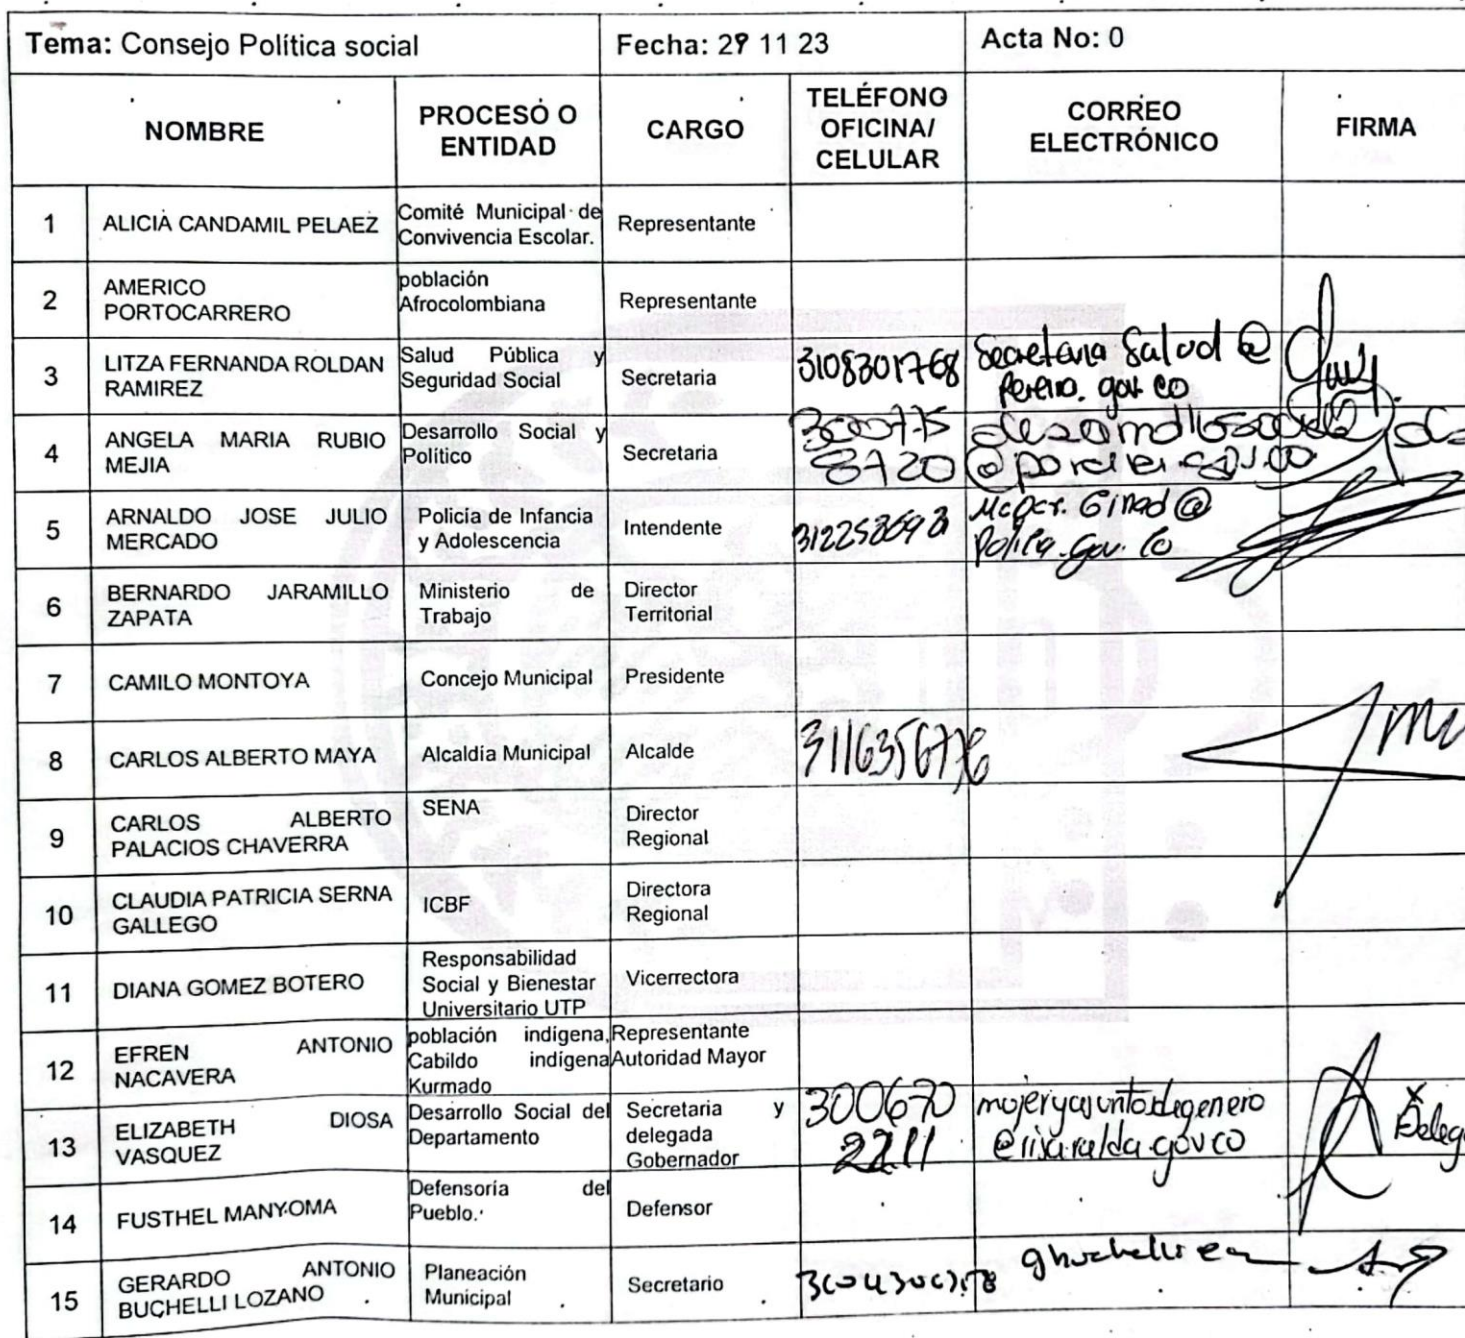 Tema: Consejo Política social Fecha: 29 11 23 Acta No: 0
NOMBRE PROCESO O ENTIDAD CARGO TELÉFONO OFICINA/ CELULAR CORREO ELECTRÓNICO FIRMA
1 ALICIA CANDAMIL PELAEZ Comité Municipal de Convivencia Escolar. Representante
2 AMERICO PORTOCARRERO población Afrocolombiana Representante
3 LITZA FERNANDA ROLDAN RAMIREZ Salud Pública y Seguridad Social Secretaria 3108301768 Secretaria Salud @
4 ANGELA MARIA RUBIO MEJIA Desarrollo Social y Político Secretaria 300775 8720
5 ARNALDO JOSE JULIO MERCADO Policía de Infancia y Adolescencia Intendente
6 BERNARDO JARAMILLO ZAPATA Ministerio de Trabajo Director Territorial
7 CAMILO MONTOYA Concejo Municipal Presidente
8 CARLOS ALBERTO MAYA Alcaldía Municipal Alcalde 3116356776
9 CARLOS ALBERTO PALACIOS CHAVERRA SENA Director Regional
10 CLAUDIA PATRICIA SERNA GALLEGO ICBF Directora Regional
11 DIANA GOMEZ BOTERO Responsabilidad Social y Bienestar Universitario UTP Vicerrectora
12 EFREN ANTONIO NACAVERA población indígena, Cabildo indígena Kurmado Representante Autoridad Mayor
13 ELIZABETH DIOSA VASQUEZ Desarrollo Social del Departamento Secretaria y delegada Gobernador 300670 2211 mujeryasuntosdegenero @risaralda.gov.co Deleg
14 FUSTHEL MANYOMA Defensoría del Pueblo. Defensor
15 GERARDO ANTONIO BUCHELLI LOZANO Planeación Municipal Secretario